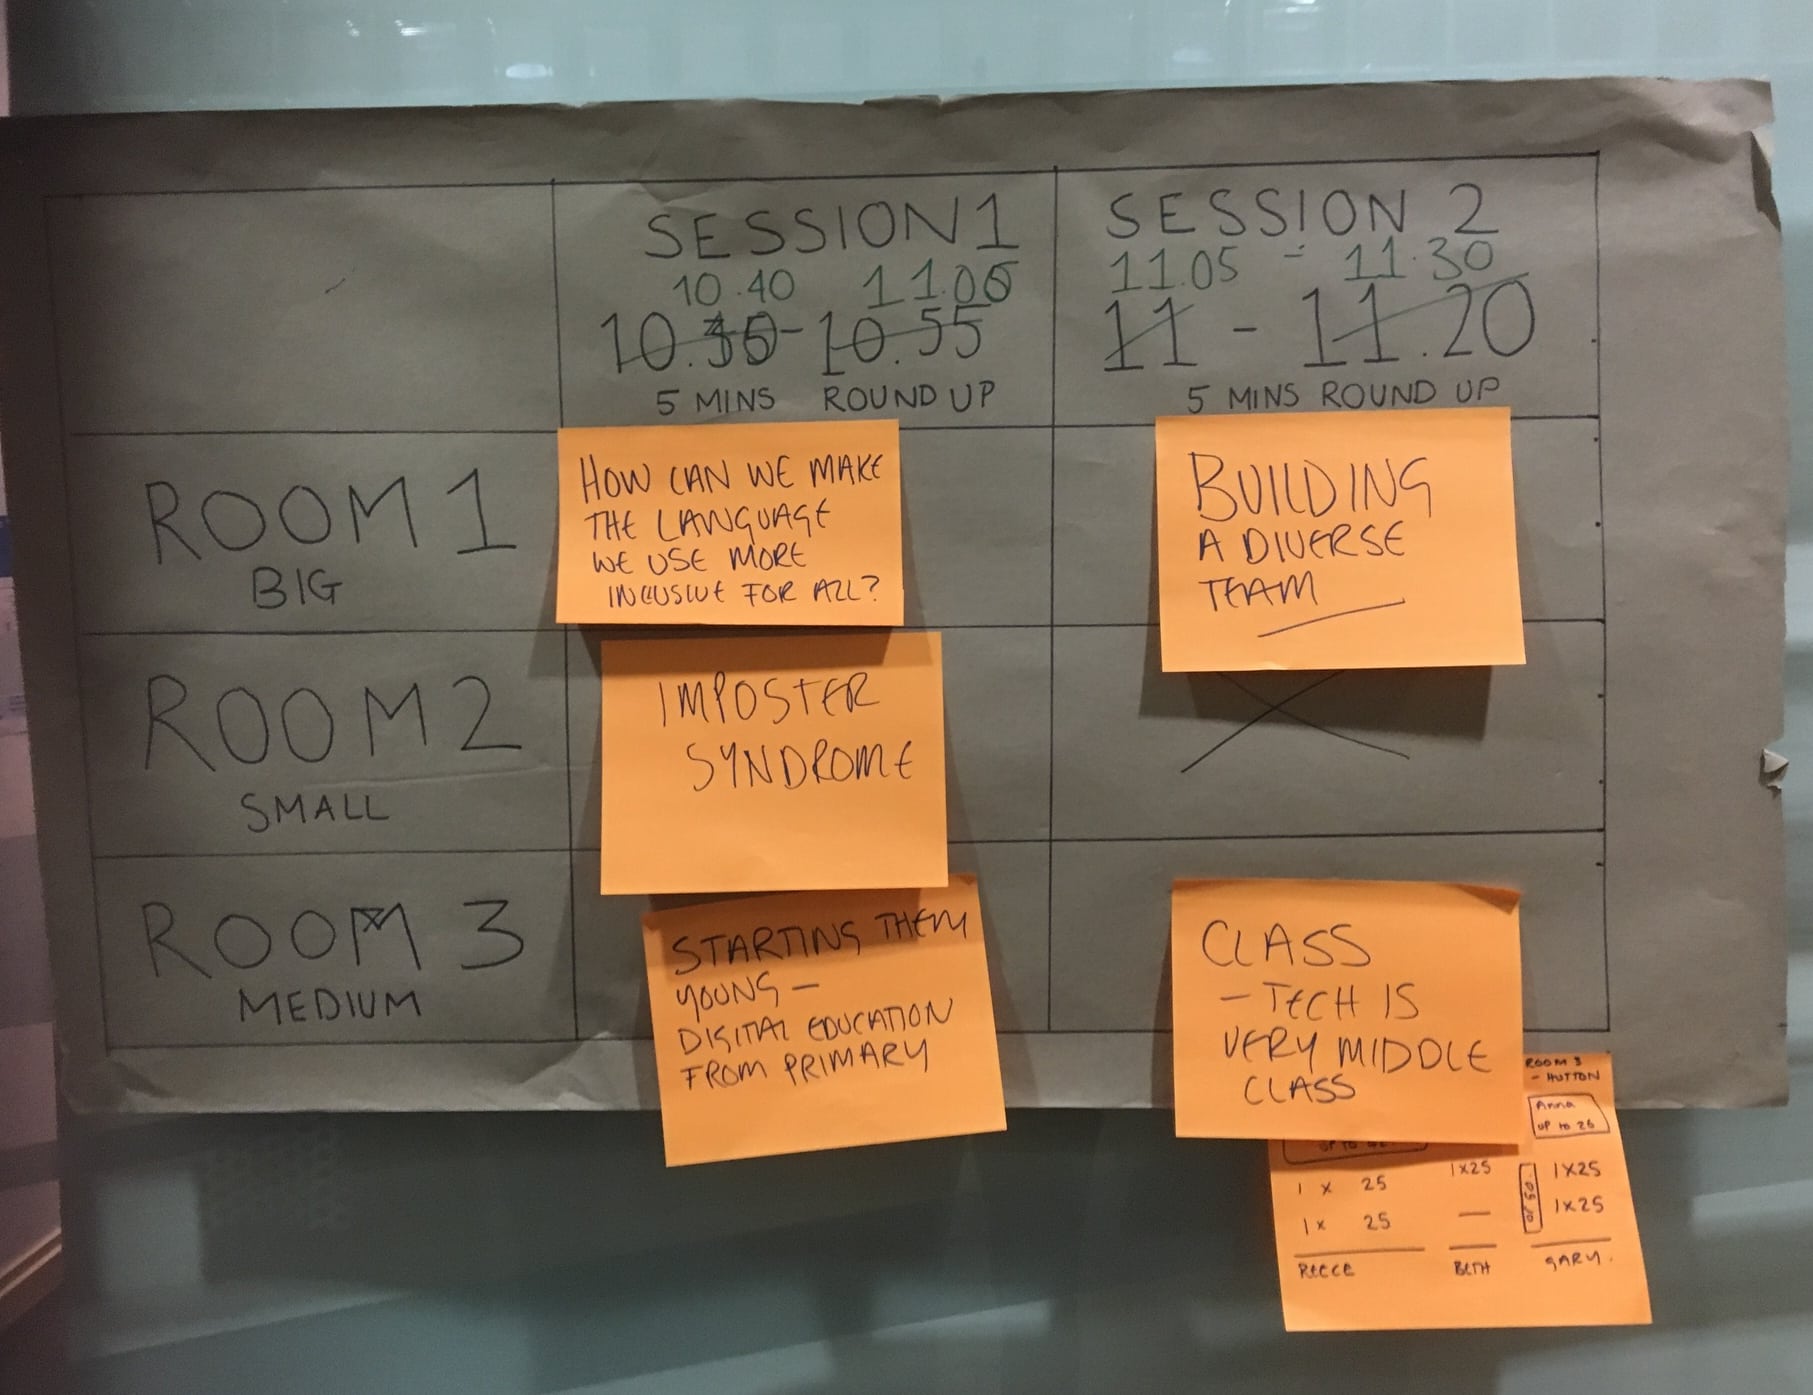 SESSION 1
10.40 11.00
10.30-10.55
5 MINS ROUND UP
SESSION 2
11.05 - 11.30
11 - 11.20
5 MINS ROUND UP
ROOM 1
BIG
HOW CAN WE MAKE
THE LANGUAGE
WE USE MORE
INCLUSIVE FOR ALL?
BUILDING
A DIVERSE
TEAM
ROOM 2
SMALL
IMPOSTER
SYNDROME
ROOM 3
MEDIUM
STARTING THEM
YOUNG —
DIGITAL EDUCATION
FROM PRIMARY
CLASS
— TECH IS
VERY MIDDLE
CLASS
ROOM 3
- HUTTON
Anna
UP to 25
1 x 25 1x25 1x25
1x 25 — 1x25
REECE BETH GARY.